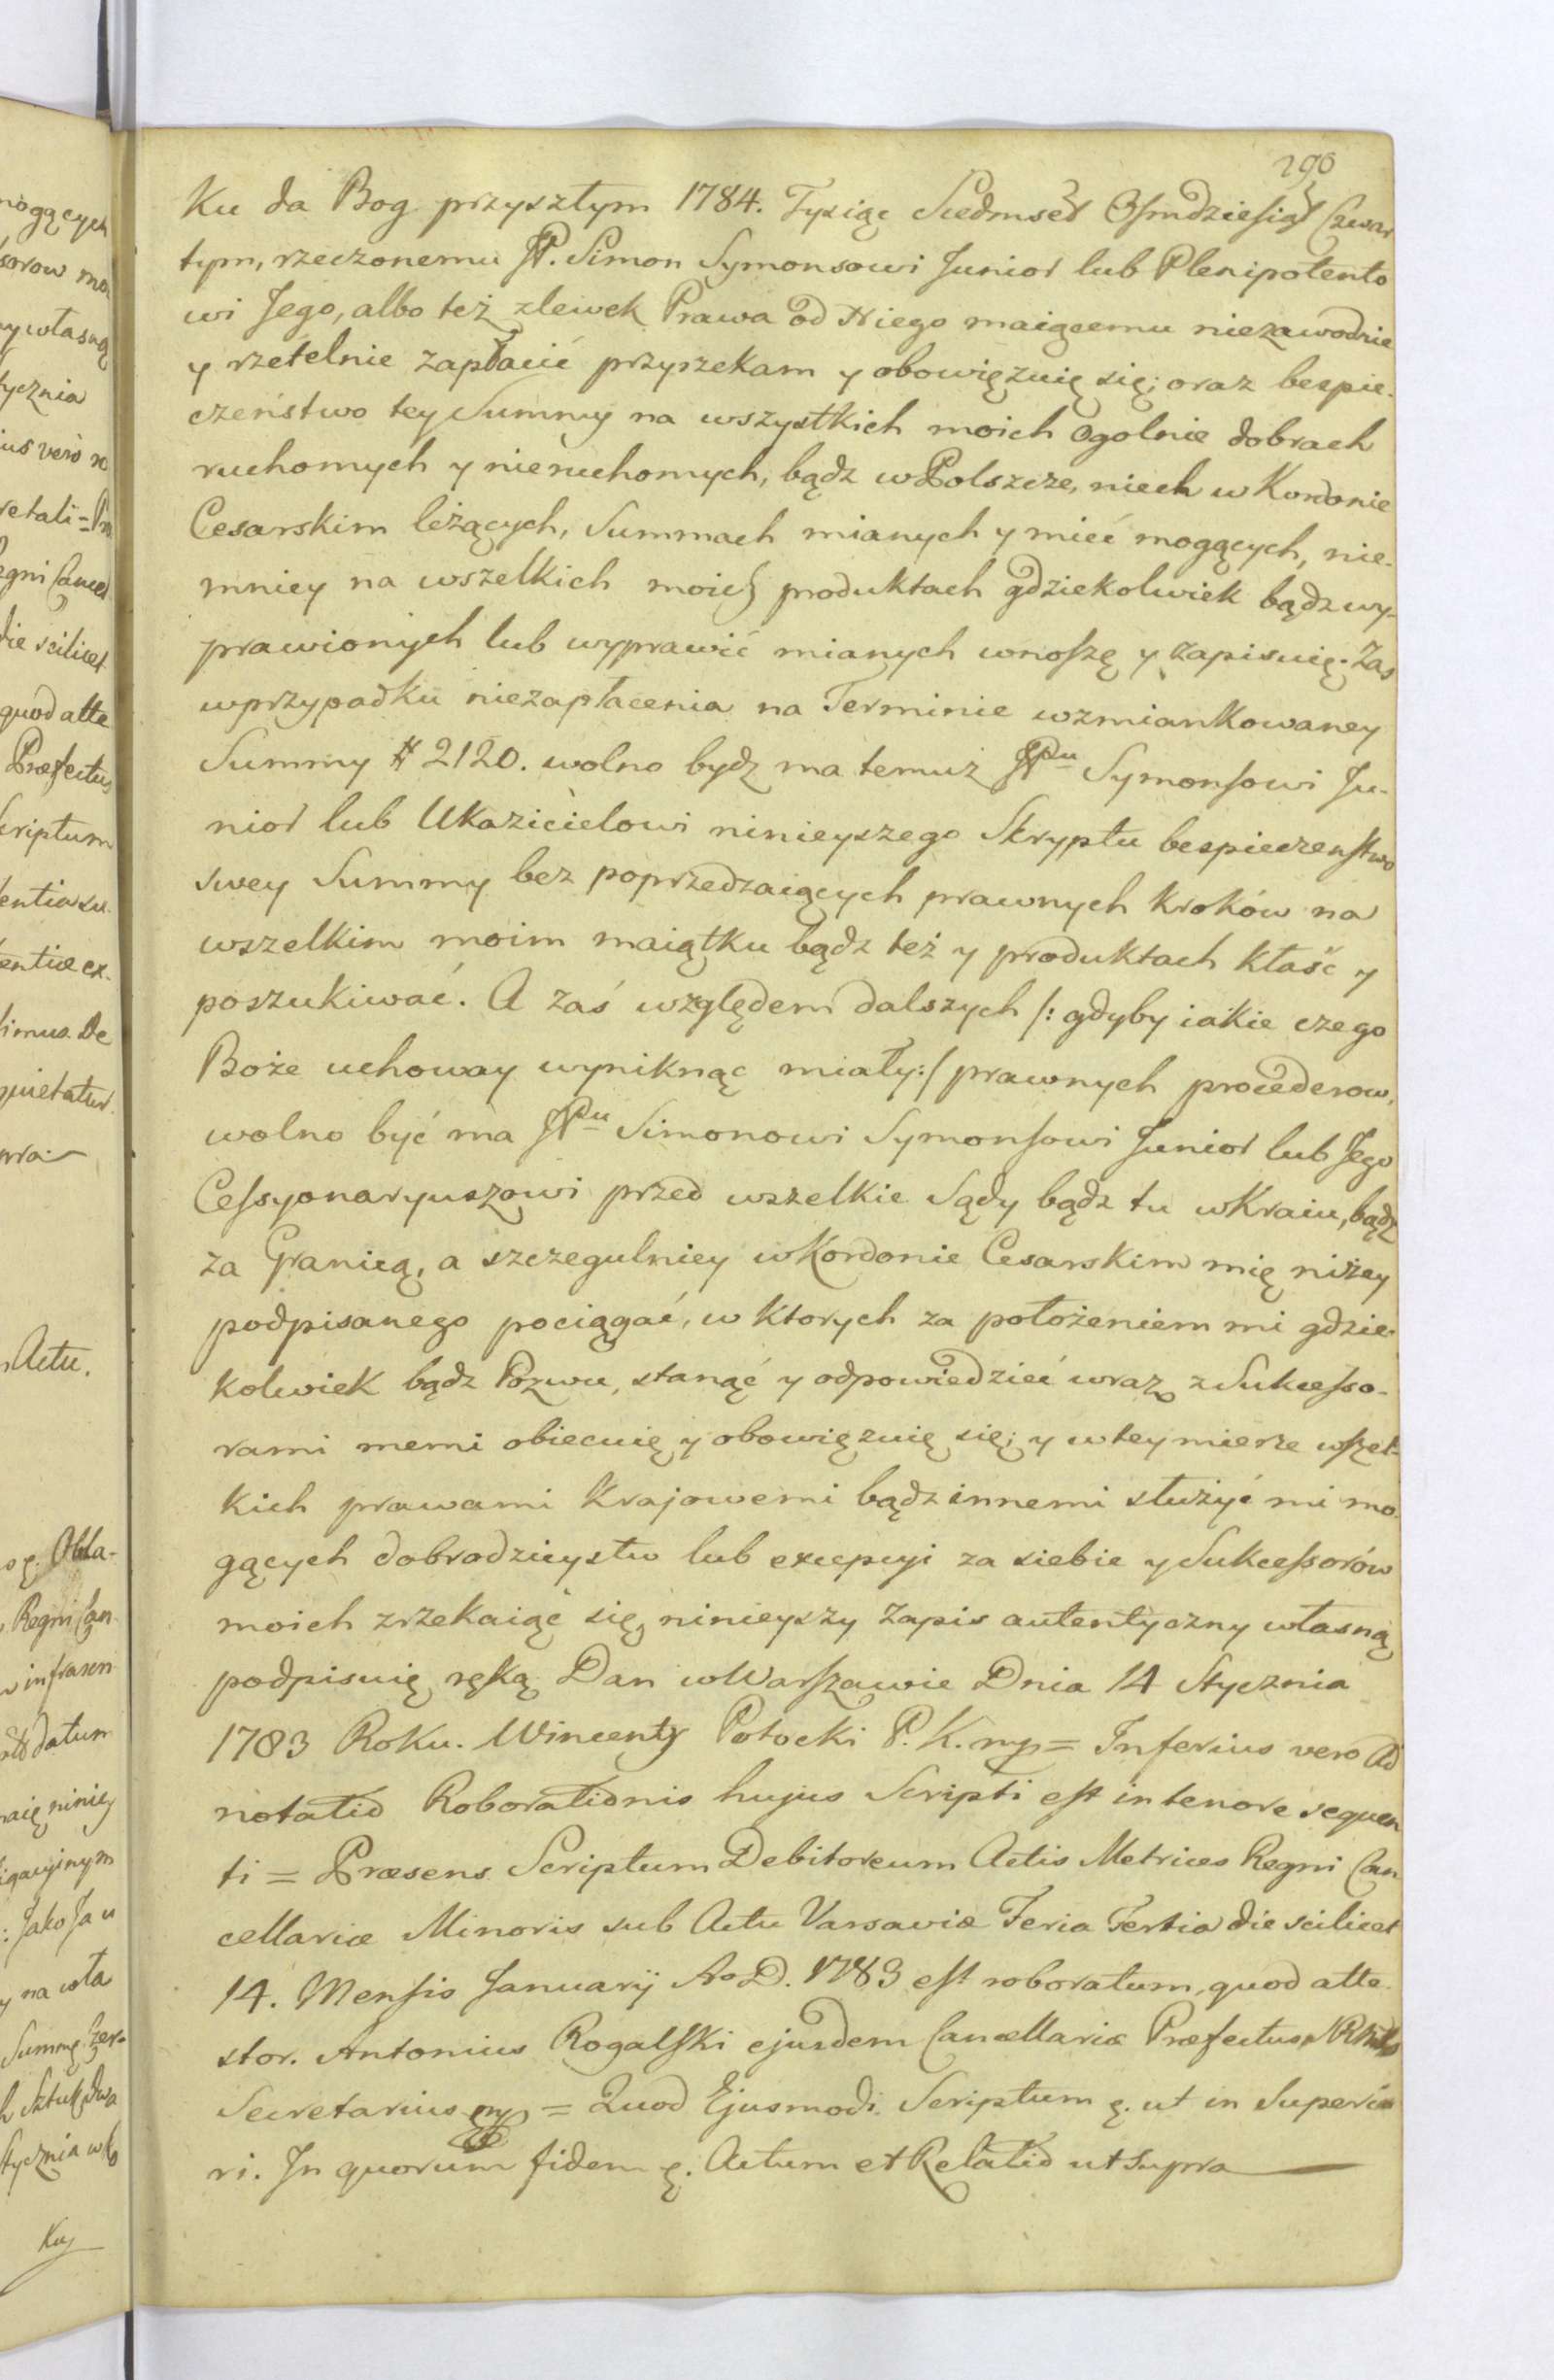 290
Ku da Bog przyszłym 1784. Tysiąc Siedmset Osmdziesiąt Czwar
tym, rzeczonemu JP. Simon Symonsowi Junior lub Plenipotento
wi Jego, albo też zlewek Prawa od Niego maiącemu niezawodnie
y rzetelnie zapłacić przyrzekam y obowięzuię się; oraz bespie-
czeństwo tey Summy na wszystkich moich ogolnie dobrach
ruchomych y nieruchomych, bądz w Polszcze, niech w Kordonie
Cesarskim leżących, Summach mianych y mieć mogących, nie-
mniey na wszelkich moich produktach gdziekolwiek bądz wy-
prawionych lub wyprawić mianych wnoszę y zapisuię. Zas
w przypadku niezapłacenia na Terminie wzmiankowaney
Summy # 2120. wolno bydz ma temuż JPu Symonsowi Ju-
nior lub Ukazicielowi ninieyszego Skryptu bespieczenstwo
swey Summy bez poprzedzaiących prawnych kroków na
wszelkim moim maiątku bądz też y produktach kłaść y
poszukiwać. A zaś względem dalszych /: gdyby iakie czego
Boże uchoway wyniknąć miały :/ prawnych procederow,
wolno być ma JPu Simonowi Symonsowi Junior lub Jego
Cessyonaryuszowi przed wszelkie Sądy bądz tu w Kraiu, bądz
za Granicą, a szczegulniey w Kordonie Cesarskim mię niżey
podpisanego pociągać, w ktorych za położeniem mi gdzie-
kolwiek bądz Pozwu, stanąć y odpowiedzieć wraz z Sukcesso-
rami memi obiecuię y obowięzuię się; y w tey mierze wszel-
kich prawami Krajowemi bądz innemi służyć mi mo
gących dobrodzieystw lub excepcyi za siebie y Sukcessorów
moich zrzekaiąc się, ninieyszy Zapis autentyczny własną
podpisuię ręką Dan w Warszawie Dnia 14 Stycznia
1783 Roku. Wincenty Potocki P. K. mp = Inferius vero Ad
notatio Roborationis hujus Scripti est in tenore sequen
ti = Præsens Scriptum Debitoreum Actis Metrices Regni Can
cellariæ Minoris sub Actu Varsaviæ Feria Tertia die scilicet
14. Mensis Januarij Ao D. 1783 est roboratum, quod atte-
stor. Antonius Rogalski ejusdem Cancellariæ Præfectus,
Secretarius mp = Quod Ejusmodi Scriptum &. ut in Superio
ri. In quorum fidem &. Actum et Relatio ut Supra